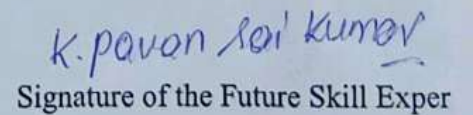 K. pavan sai kumar
Signature of the Future Skill Exper